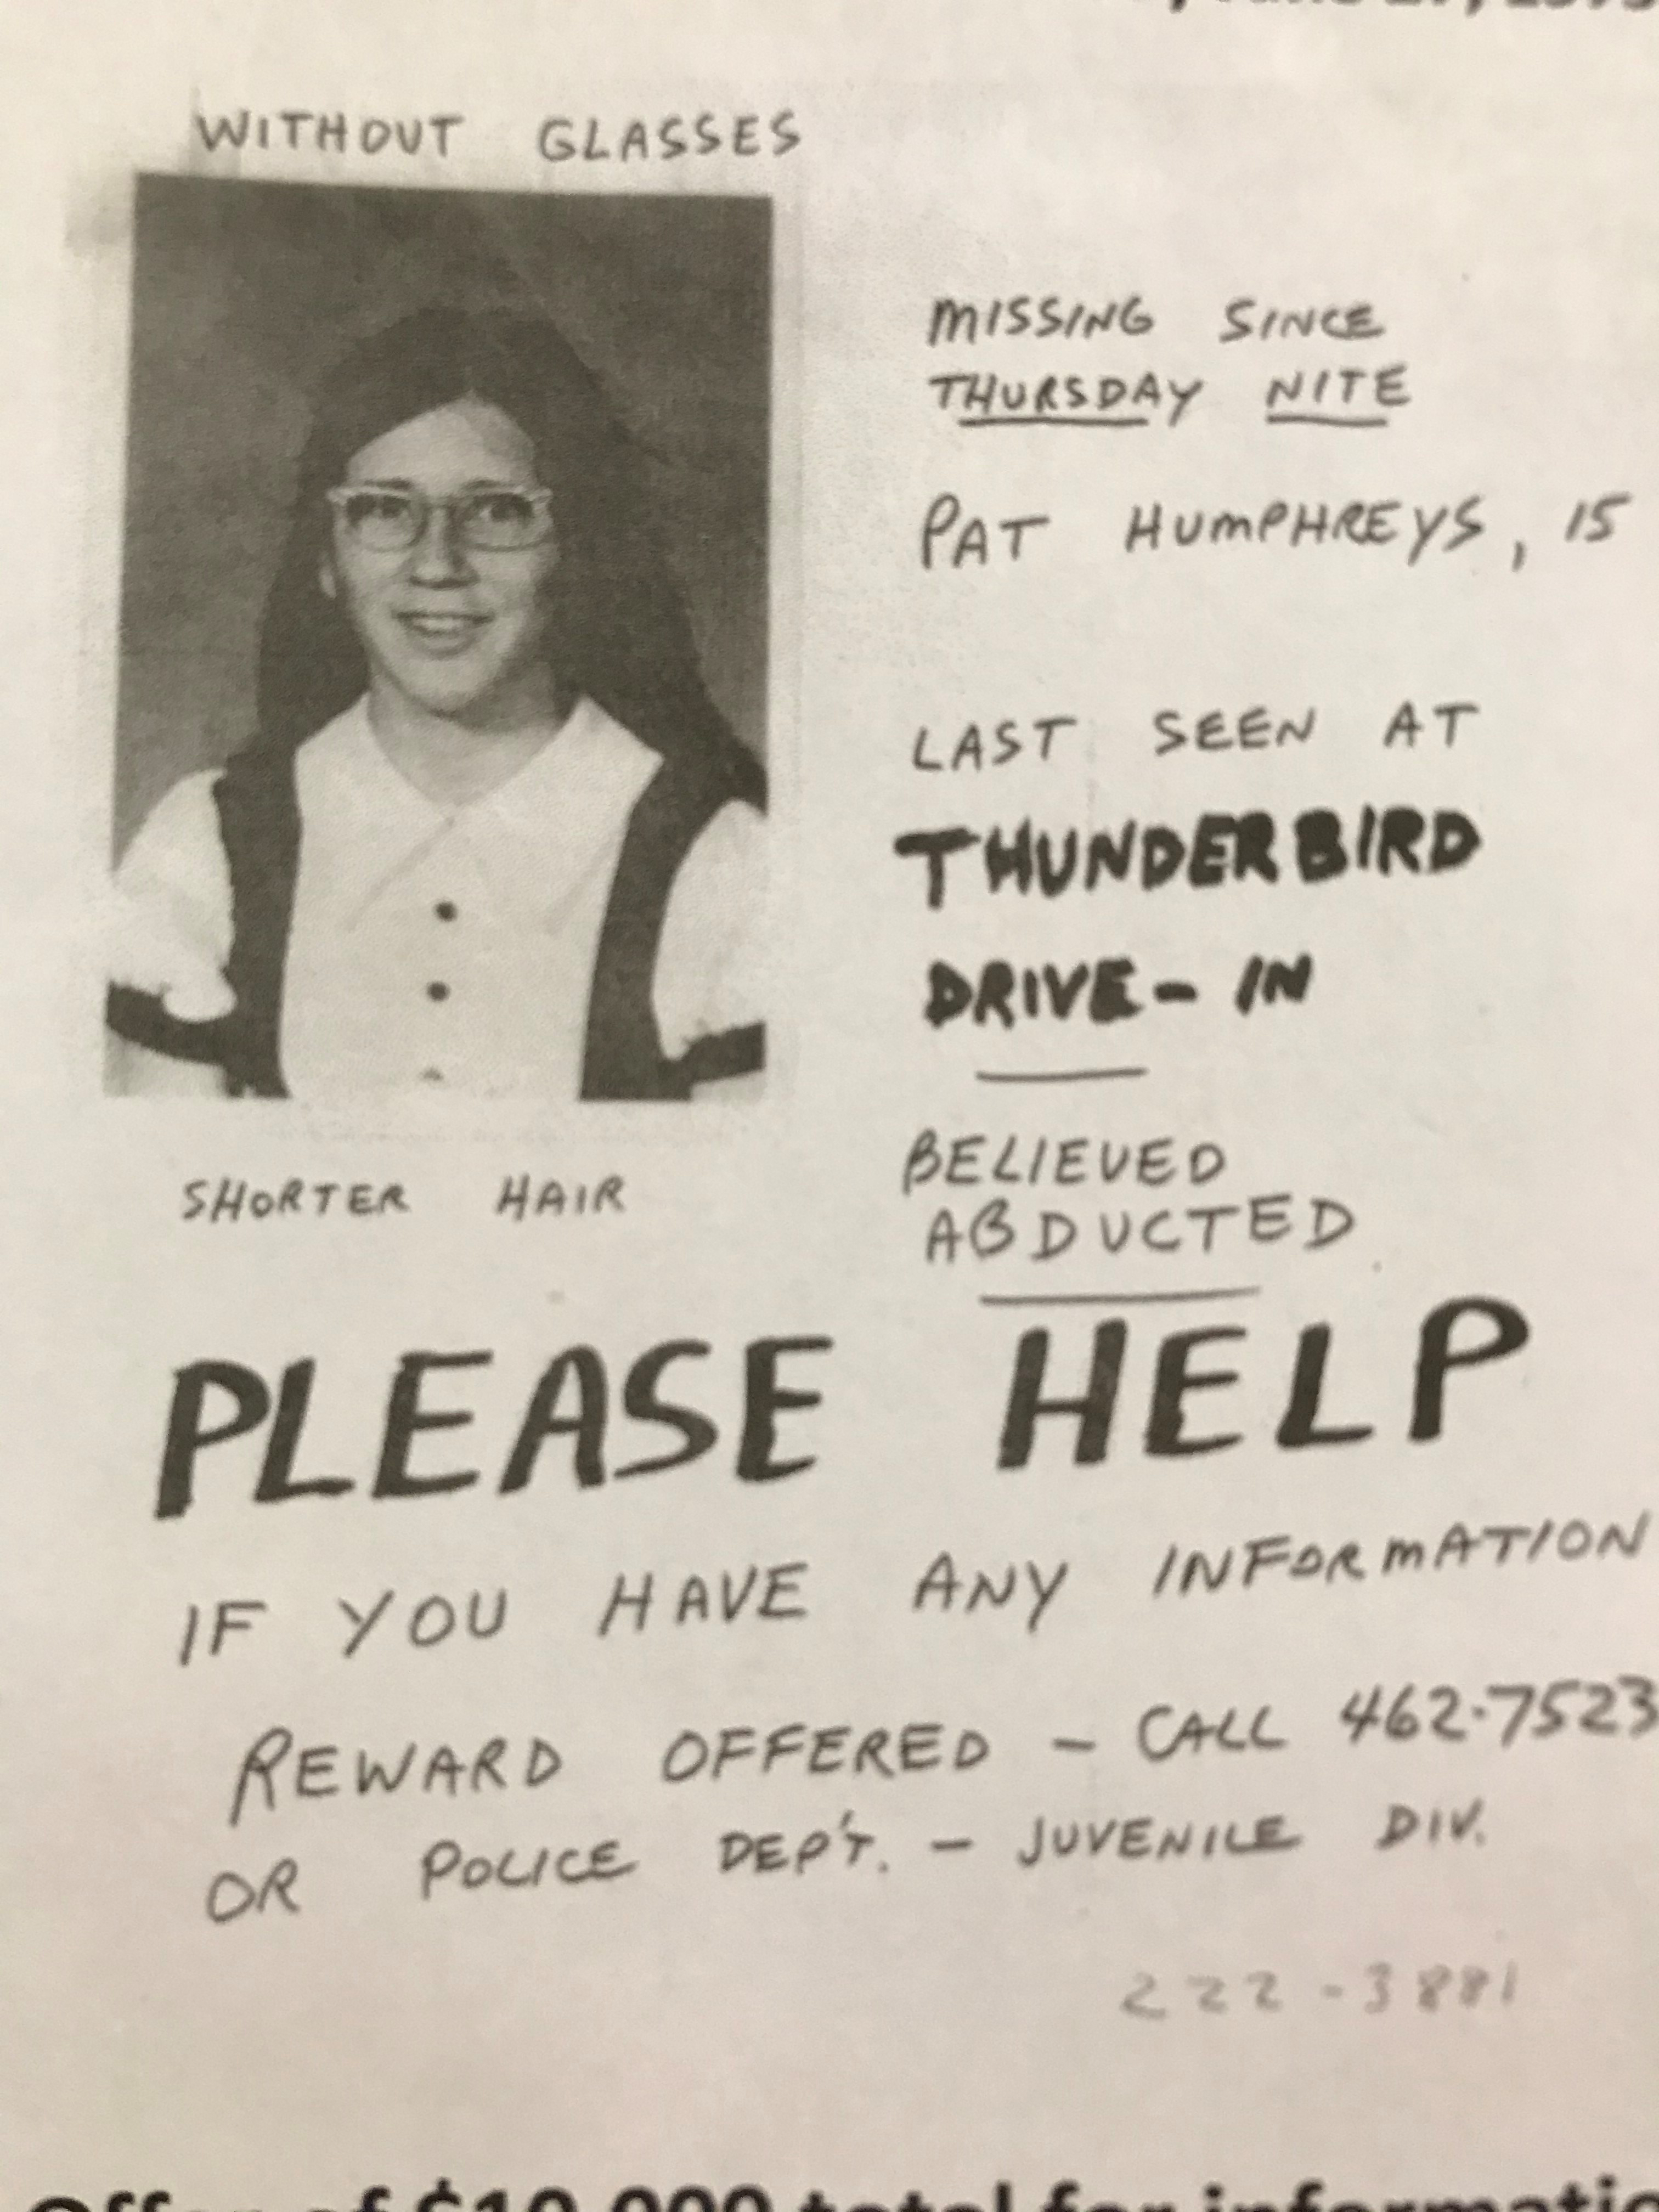 WITHOUT GLASSES
MISSING SINCE
THURSDAY NITE
PAT HUMPHREYS, 15
LAST SEEN AT
THUNDERBIRD
DRIVE-IN
BELIEVED
ABDUCTED
SHORTER HAIR
PLEASE HELP
IF YOU HAVE ANY INFORMATION
REWARD OFFERED - CALL 462-7523
OR POLICE DEP'T. - JUVENILE DIV.
222-3881
Offer of $10,000 total for